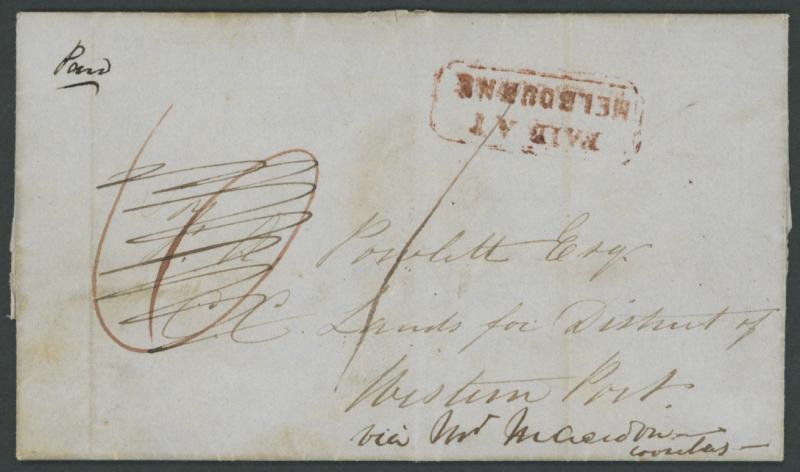 Paid
PAID AT
MELBOURNE
For
F. A. Powlett Esq.
C. C. Lands for District of
Western Port
via Mt Macedon